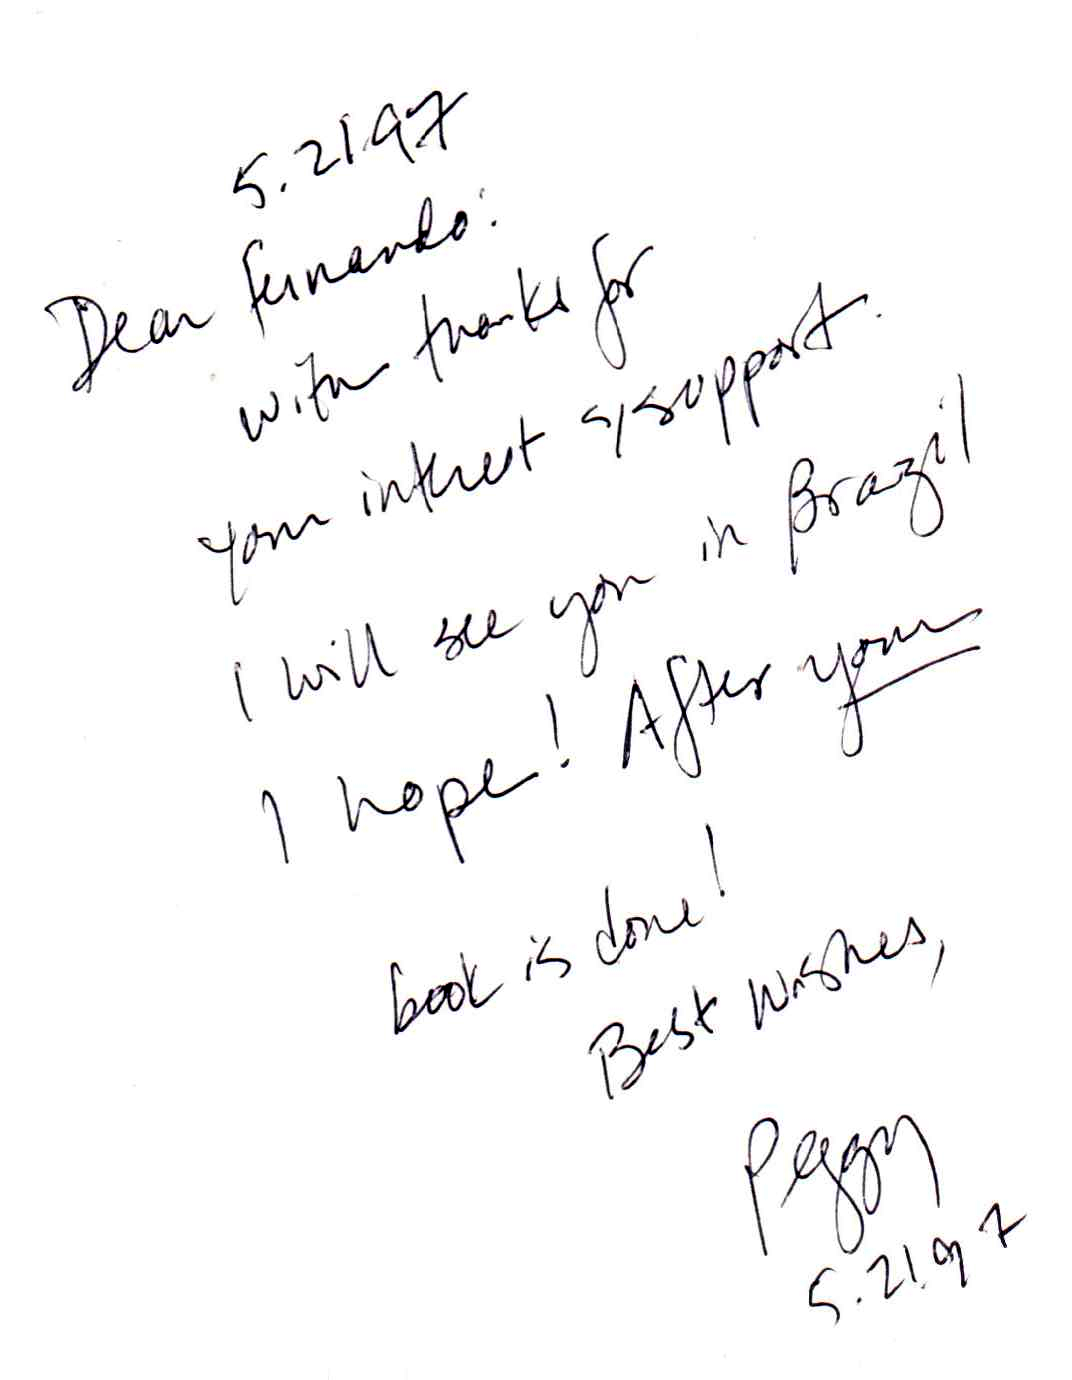 5.21.97
Dear Fernando:
with thanks for
your interest & support.
I will see you in Brazil
I hope! After your
book is done!
Best Wishes,
Peggy
5.21.97